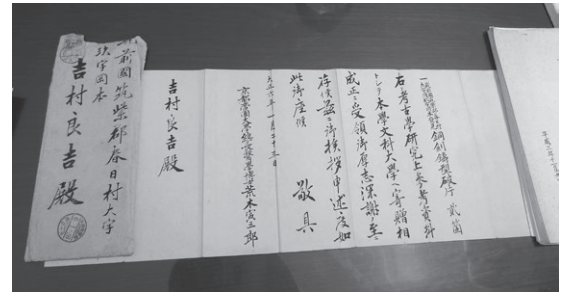 筑前國筑紫郡春日村大字
須玖字岡本
吉村良吉殿
銅剣鎔笵破片 貳箇
右考古學研究上参考資料
トシテ本學文科大學ヘ寄贈相
成正ニ受領御厚志深謝ノ至ニ
存候茲ニ御挨拶申述度如
此御座候
敬具
大正六年一月二十三日
京都帝國大學總長 荒木寅三郎
吉村良吉殿